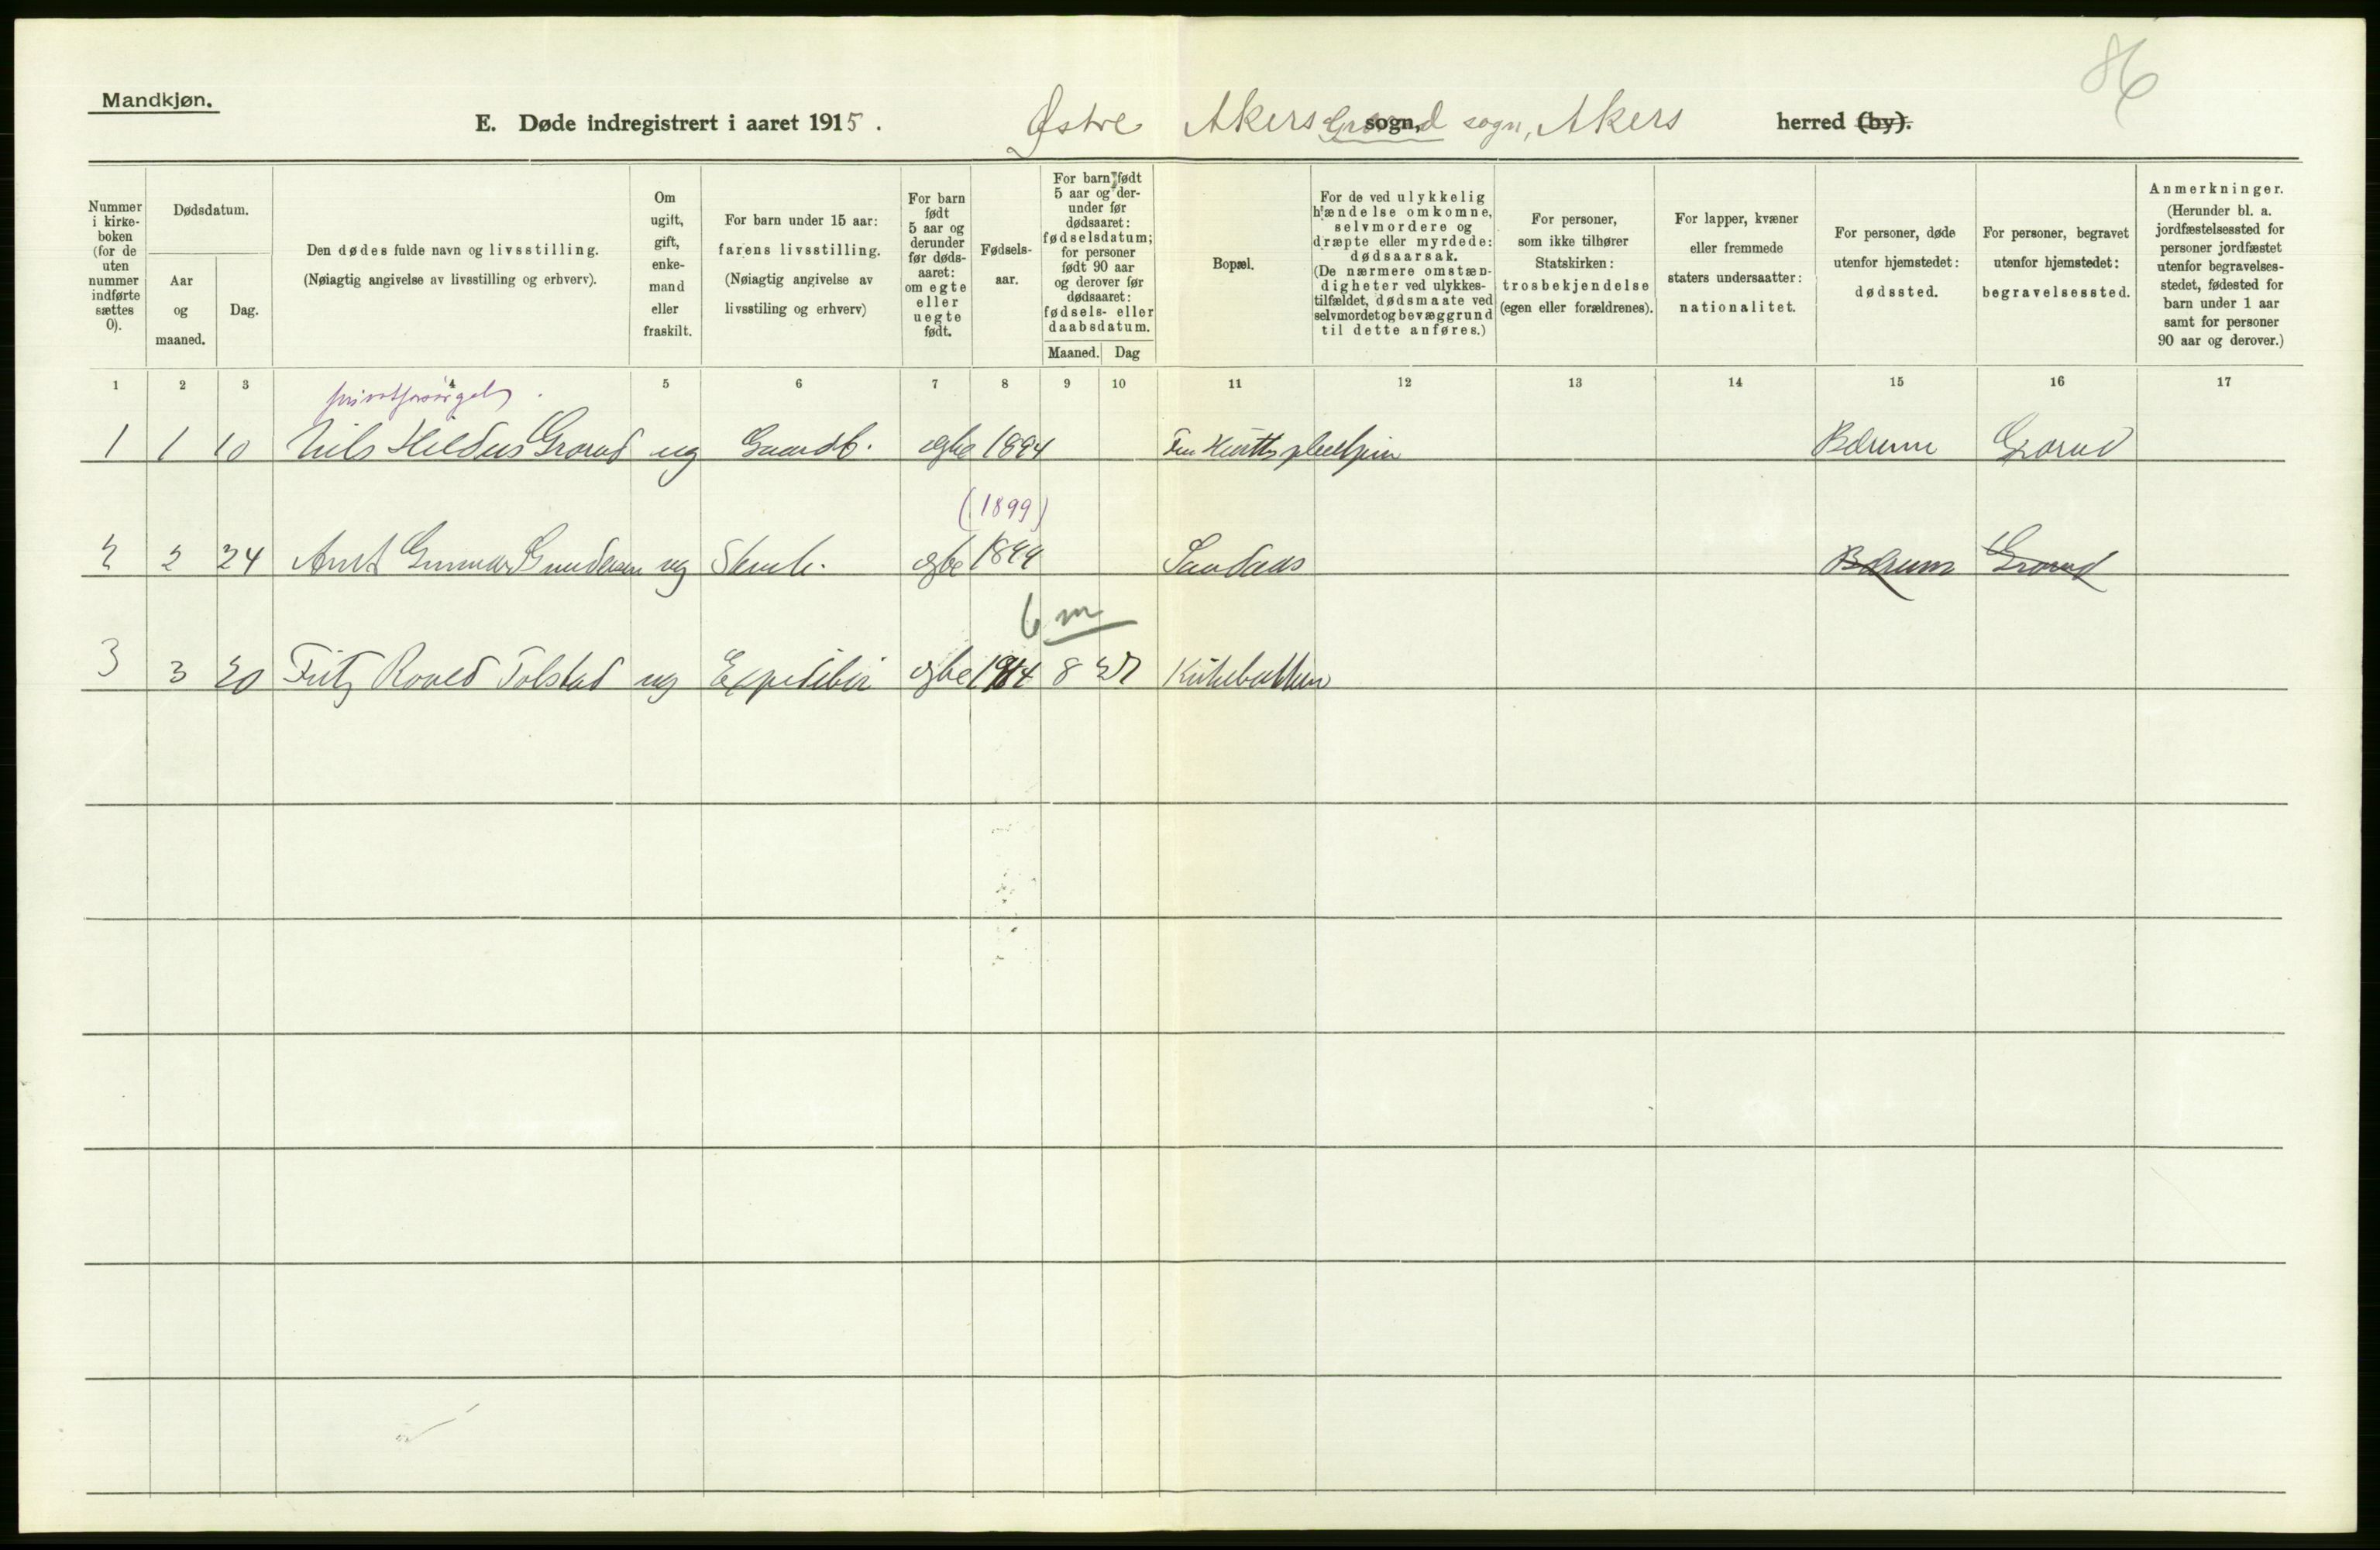 86
Mandkjøn.
E. Døde indregistrert i aaret 1915. Østre Akers Grorud sogn, sogn, Akers herred (by).
Nummer i kirkeboken (for de uten nummer indførte sættes 0).
Dødsdatum.
Aar og maaned.
Dag.
Den dødes fulde navn og livsstilling.
(Nøiagtig angivelse av livsstilling og erhverv).
Om ugift, gift, enkemand eller fraskilt.
For barn under 15 aar: farens livsstilling.
(Nøiagtig angivelse av livsstiling og erhverv)
For barn født 5 aar og derunder før dødsaaret: om egte eller uegte født.
Fødselsaar.
For barn født 5 aar og derunder før dødsaaret: fødselsdatum; for personer født 90 aar og derover før dødsaaret: fødsels- eller daabsdatum.
Maaned. Dag
Bopæl.
For de ved ulykkelig hændelse omkomne, selvmordere og dræpte eller myrdede: dødsaarsak.
(De nærmere omstændigheter ved ulykkestilfældet, dødsmaate ved selvmordet og bevæggrund til dette anføres.)
For personer, som ikke tilhører Statskirken: trosbekjendelse (egen eller forældrenes).
For lapper, kvæner eller fremmede staters undersaatter: nationalitet.
For personer, døde utenfor hjemstedet: dødssted.
For personer, begravet utenfor hjemstedet: begravelsessted.
Anmerkninger.
(Herunder bl. a. jordfæstelsessted for personer jordfæstet utenfor begravelsesstedet, fødested for barn under 1 aar samt for personer 90 aar og derover.)
1 2 3 4 5 6 7 8 9 10 11 12 13 14 15 16 17
1 1 10 Nils Grorud ug Gaardb. egte 1894 pleiehjem Bærum Grorud
(1899)
2 2 24 Gunnar Gundersen ug egte 1899 Bærum Grorud
6 m
3 3 20 Fritz Roald Tolstad ug Expeditør egte 1914 8 27 Kirkebakken